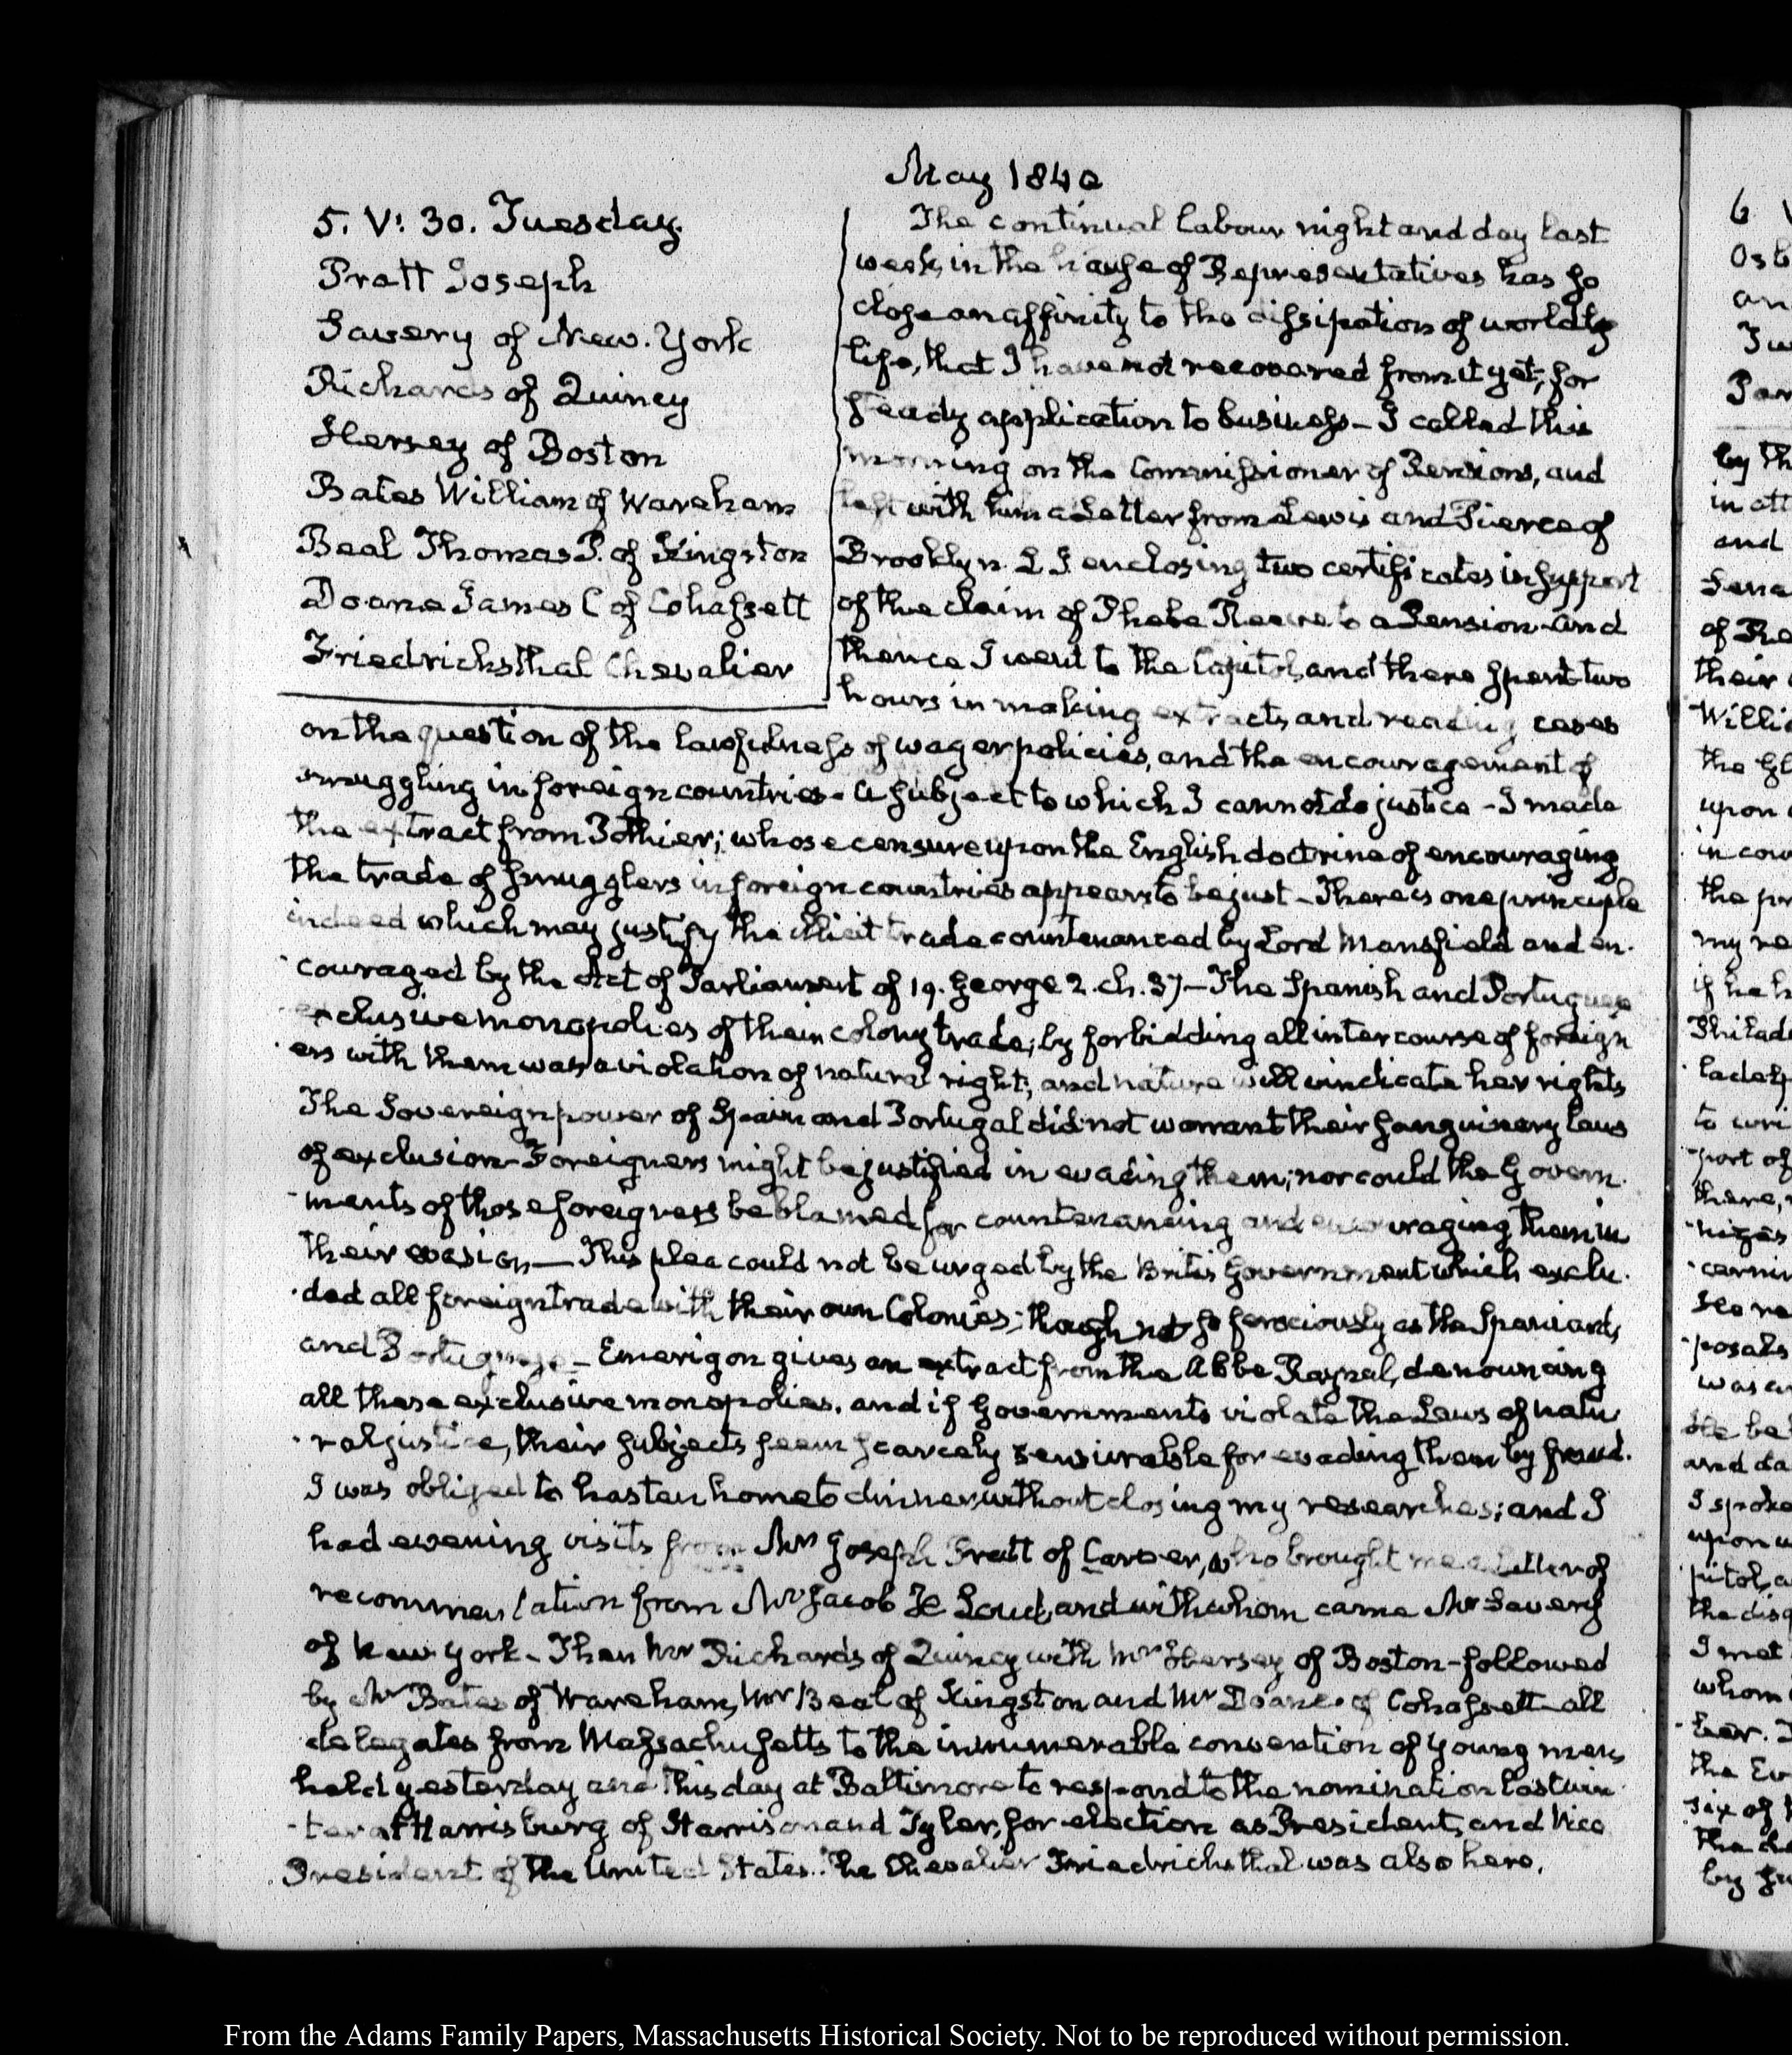 May 1840
5. V: 30. Tuesday.
Pratt Joseph
Savery of New. York
Richards of Quincy
Hersey of Boston
Bates William of Wareham
Beal Thomas P. of Kingston
Doane James C of Cohassett
Friedrichsthal Chevalier
The continual labour night and day last
week, in the house of Representatives has so
close an affinity to the dissipation of worldly
life, that I have not recovered from it yet, for
steady application to business – I called this
morning on the Commissioner of Pensions, and
left with him a Letter from Lewis and Pierce of
Brooklyn. L I enclosing two certificates in support
of the claim of Phebe Reeve to a Pension – and
thence I went to the Capitol, and there spent two
hours in making extracts, and reading cases
on the question of the lawfulness of wager policies, and the encouragement of
smuggling in foreign countries. A subject to which I cannot do justice – I made
the extract from Pothier; whose censure upon the English doctrine of encouraging
the trade of smugglers in foreign countries appears to be just – There is one principle
indeed which may justify the illicit trade countenanced by Lord Mansfield and en-
couraged by the Act of Parliament of 19. George 2. ch. 37 – The Spanish and Portuguese
exclusive monopolies of their colony trade; by forbidding all intercourse of foreign
ers with them was a violation of natural right; and nature will vindicate her rights
The Sovereign power of Spain and Portugal did not warrant their sanguinary laws
of exclusion – Foreigners might be justified in evading them; nor could the Govern-
ments of those foreigners be blamed for countenancing and encouraging them in
their evasion — This plea could not be urged by the Britis Government which exclu-
ded all foreign trade with their own Colonies; though not so ferociously as the Spaniards,
and Portuguese – Emerigon gives an extract from the Abbe Raynal, denouncing
all these exclusive monopolies, and if Governments violate the Laws of natu-
ral justice, their subjects seem scarcely censurable for evading them by fraud.
I was obliged to hasten home to dinner, without closing my researches; and I
had evening visits from Mr Joseph Pratt of Carver, who brought me a Letter of
recommendation from Mr Jacob H Loud, and with whom came Mr Savery
of New York – Then Mr Richards of Quincy with Mr Hersey of Boston – followed
by Mr Bates of Wareham, Mr Beal of Kingston and Mr Doane of Cohassett – all
delegates from Massachusetts to the innumerable convention of young men,
held yesterday and this day at Baltimore to respond to the nomination last win-
ter at Harrisburg of Harrison and Tyler, for election as President, and Vice
President of the United States. The Chevalier Friedrichsthal was also here.
6
Osb
an
by th
in att
and
of Re
their
Willi
upon
in cou
my re
if he h
Philad
there,
posals
was
He be
and da
I spoke
upon
I met
whom
six of
From the Adams Family Papers, Massachusetts Historical Society. Not to be reproduced without permission.